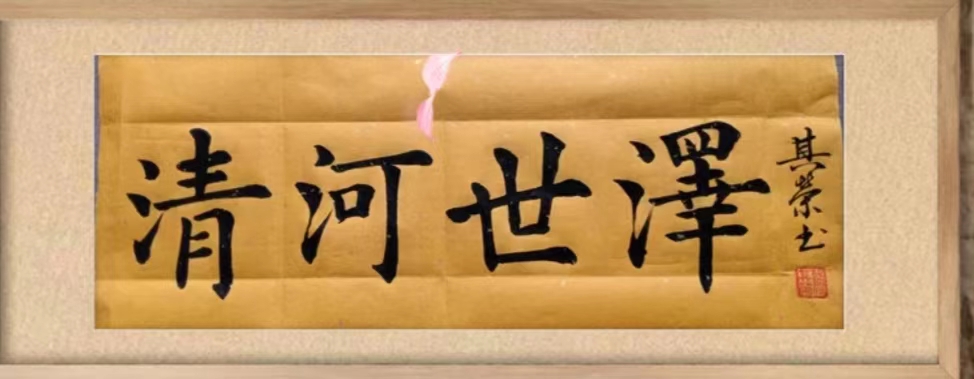 清河世澤
其榮书